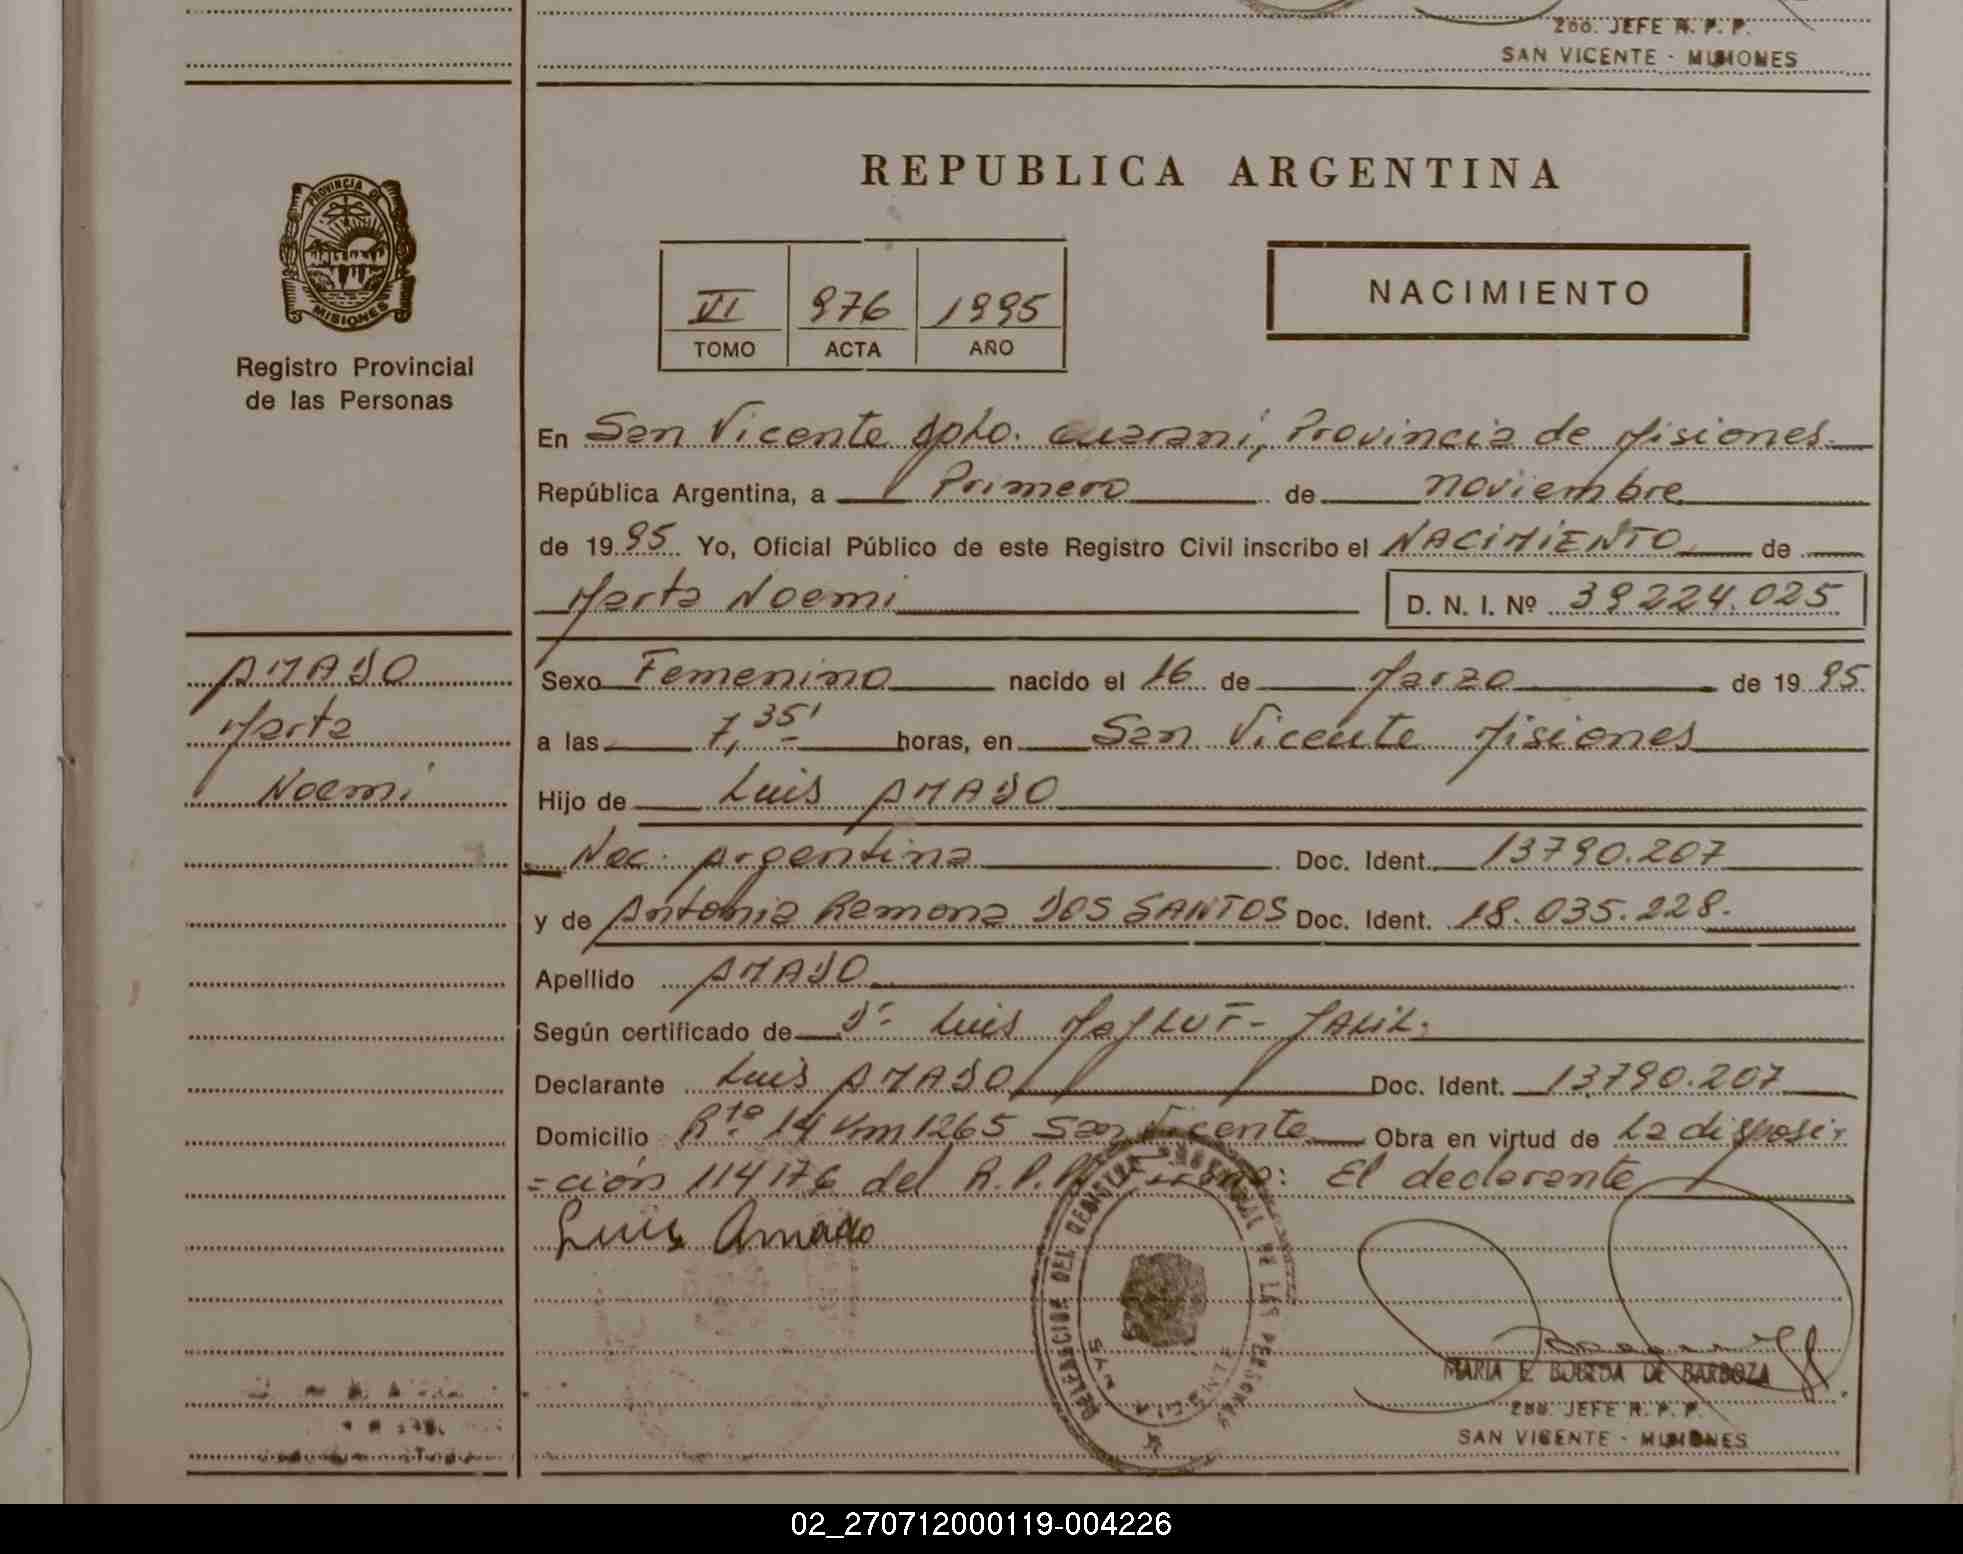 2do. JEFE R. P. P.
SAN VICENTE - MISIONES
PROVINCIA DE
MISIONES
Registro Provincial
de las Personas
REPUBLICA ARGENTINA
VI 976 1995
TOMO ACTA AÑO
NACIMIENTO
En San Vicente dpto. Guaraní, Provincia de Misiones
República Argentina, a Primero de noviembre
de 1995 Yo, Oficial Público de este Registro Civil inscribo el NACIMIENTO de
Marta Noemi D. N. I. Nº 39224.025
AMADO
Marta
Noemi
Sexo Femenino nacido el 16 de Marzo de 1995
a las 7,35' horas, en San Vicente Misiones
Hijo de Luis AMADO
Nac. Argentina Doc. Ident. 13790.207
y de Antonia Ramona DOS SANTOS Doc. Ident. 18.035.228.
Apellido AMADO
Según certificado de Dr. Luis JALIL.
Declarante Luis AMADO Doc. Ident. 13.790.207
Domicilio Rta 14 Km 1265 San Vicente Obra en virtud de La disposi-
=ción 114176 del R.P.P. El declarante
Luis Amado
DELEGACION DEL REGISTRO PROVINCIAL DE LAS PERSONAS
MARIA E. BOBEDA DE BARBOZA
2do. JEFE R. P. P.
SAN VICENTE - MISIONES
02_270712000119-004226